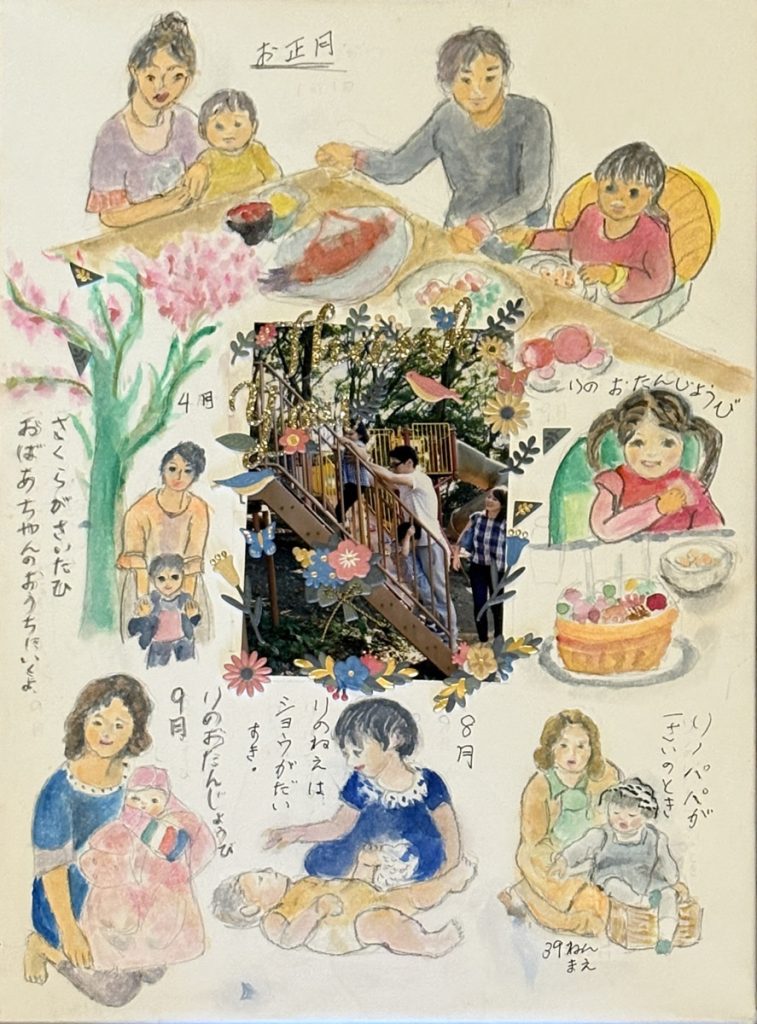 お正月
Thank
You
りの おたんじょうび
4月
さくらがさいたひ
おばあちゃんのおうちにいくよ
8月
りのねえは
ショウがだい
すき。
りのおたんじょうび
9月
リノパパが
一さいのとき
39ねん
まえ